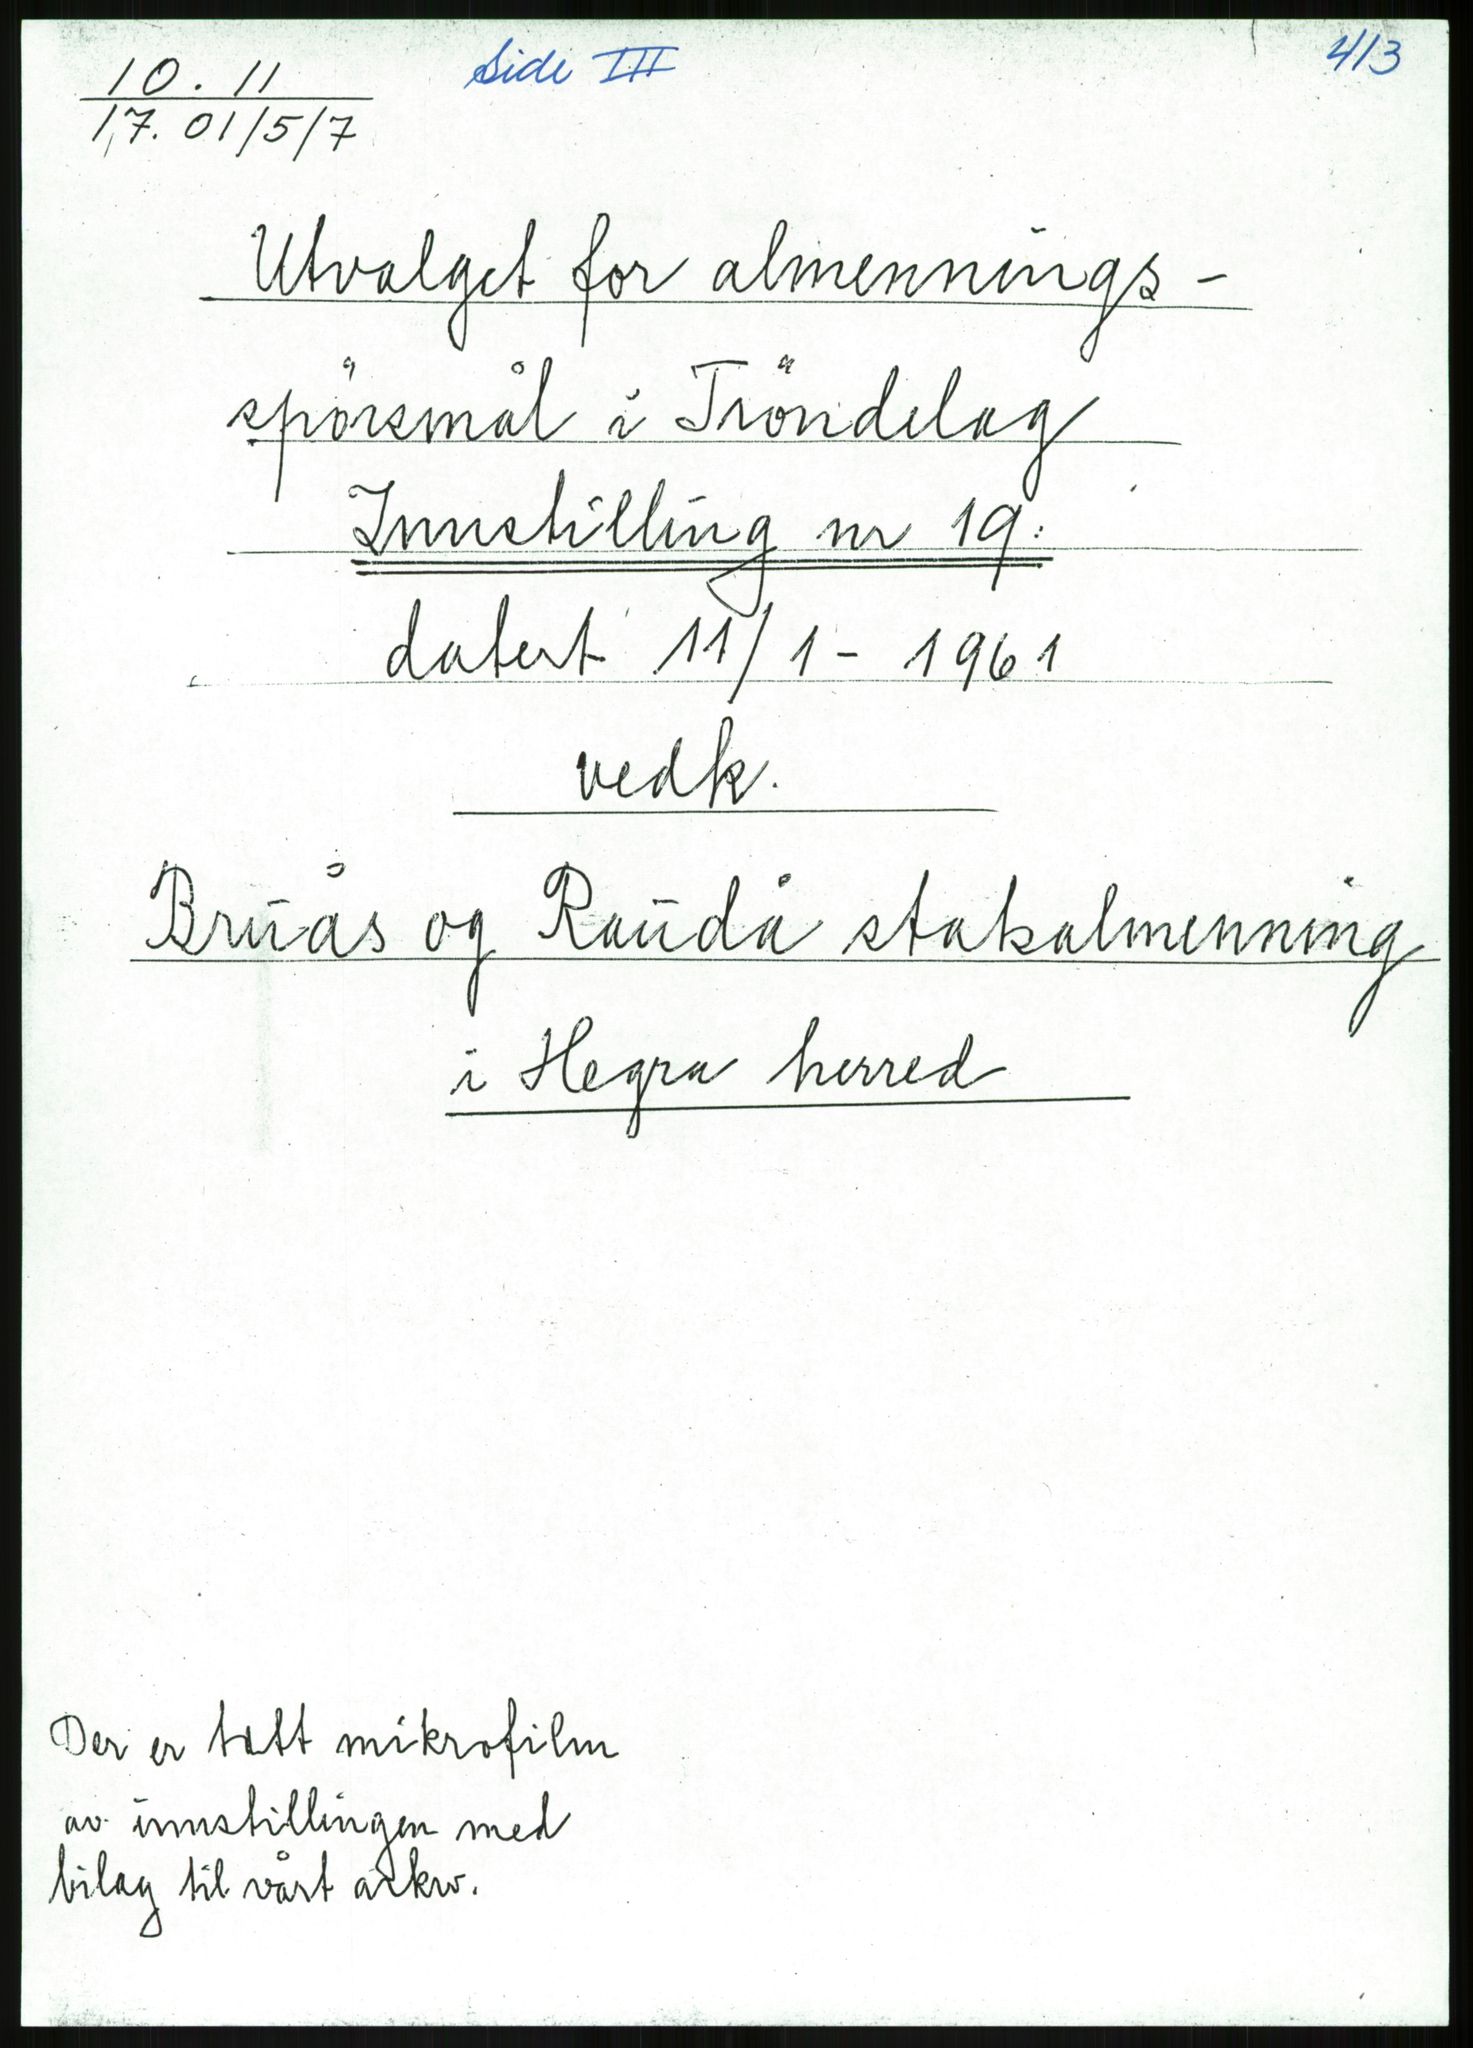 10.11
Side III
413
17.01/5/7
Utvalget for almennings-
spörsmål i Tröndelag
Innstilling nr 19:
datert 11/1-1961
vedk.
Bruås og Raudå statsalmenning
i Hegra herred
Der er tatt mikrofilm
av innstillingen med
bilag til vårt arkiv.